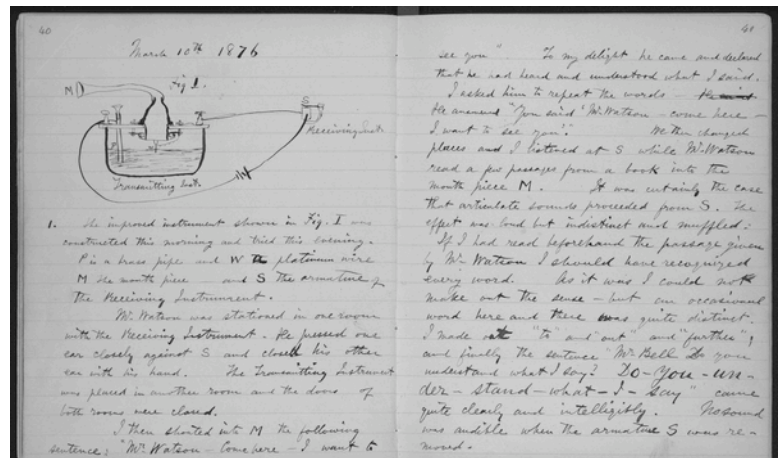 40
March 10th 1876
Fig I.
M
S
Receiving Inst.
P
W
Transmitting Inst.
1. The improved instrument shown in Fig. I was
constructed this morning and tried this evening.
P is a brass pipe and W the platinum wire
M the mouth piece and S the armature of
the Receiving Instrument.
Mr. Watson was stationed in one room
with the Receiving Instrument. He pressed one
ear closely against S and closed his other
ear with his hand. The Transmitting Instrument
was placed in another room and the doors of
both rooms were closed.
I then shouted into M the following
sentence: "Mr. Watson — Come here — I want to
41
see you". To my delight he came and declared
that he had heard and understood what I said.
I asked him to repeat the words —
He answered "You said 'Mr. Watson — come here —
I want to see you'." We then changed
places and I listened at S while Mr. Watson
read a few passages from a book into the
mouth piece M. It was certainly the case
that articulate sounds proceeded from S. The
effect was loud but indistinct and muffled.
If I had read beforehand the passage given
by Mr. Watson I should have recognized
every word. As it was I could not
make out the sense — but an occasional
word here and there was quite distinct.
I made out "to" and "out" and "further";
and finally the sentence "Mr. Bell Do you
understand what I say? Do-you-un-
der-stand-what-I-say" came
quite clearly and intelligibly. No sound
was audible when the armature S was re-
moved.